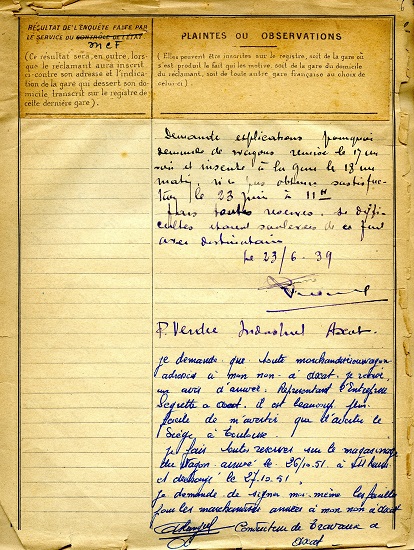 RÉSULTAT DE L'ENQUÊTE FAITE PAR
LE SERVICE DU CONTRÔLE DE L'ÉTAT
SNCF
(Ce résultat sera, en outre, lors-
que le réclamant aura inscrit
ci-contre son adresse et l'indica-
tion de la gare qui dessert son do-
micile transcrit sur le registre de
cette dernière gare).
PLAINTES OU OBSERVATIONS
(Elles peuvent être inscrites sur le registre, soit de la gare où
s'est produit le fait qui les motive, soit de la gare du domicile
du réclamant, soit de toute autre gare française au choix de
celui-ci.)
Demande explications pourquoi
demande de wagons remise le 17 au
soir et inscrite à la gare le 18 au
matin, n'a pas obtenu satisfac-
tion le 23 juin à 11H
fais toutes reserves, de diffi-
cultés étant soulevées de ce fait
avec destinataire
Le 23/6-39
P. Verdie Industriel Axat.
je demande que toute marchandise ou wagon
adressés à mon nom à Axat. je reçoive
un avis d'arrivée. Représentant l'Entreprise
a Axat. il est beaucoup plus
facile de m'avertir que d'avertir le
Siège, à Toulouse.
je fais toutes reserves sur le magasinage
du Wagon arrivé le 26/10.51. à
et le 27.10.51.
je demande de signer moi-même les feuilles
pour les marchandises arrivées à mon nom à Axat
Conducteur de Travaux a
Axat